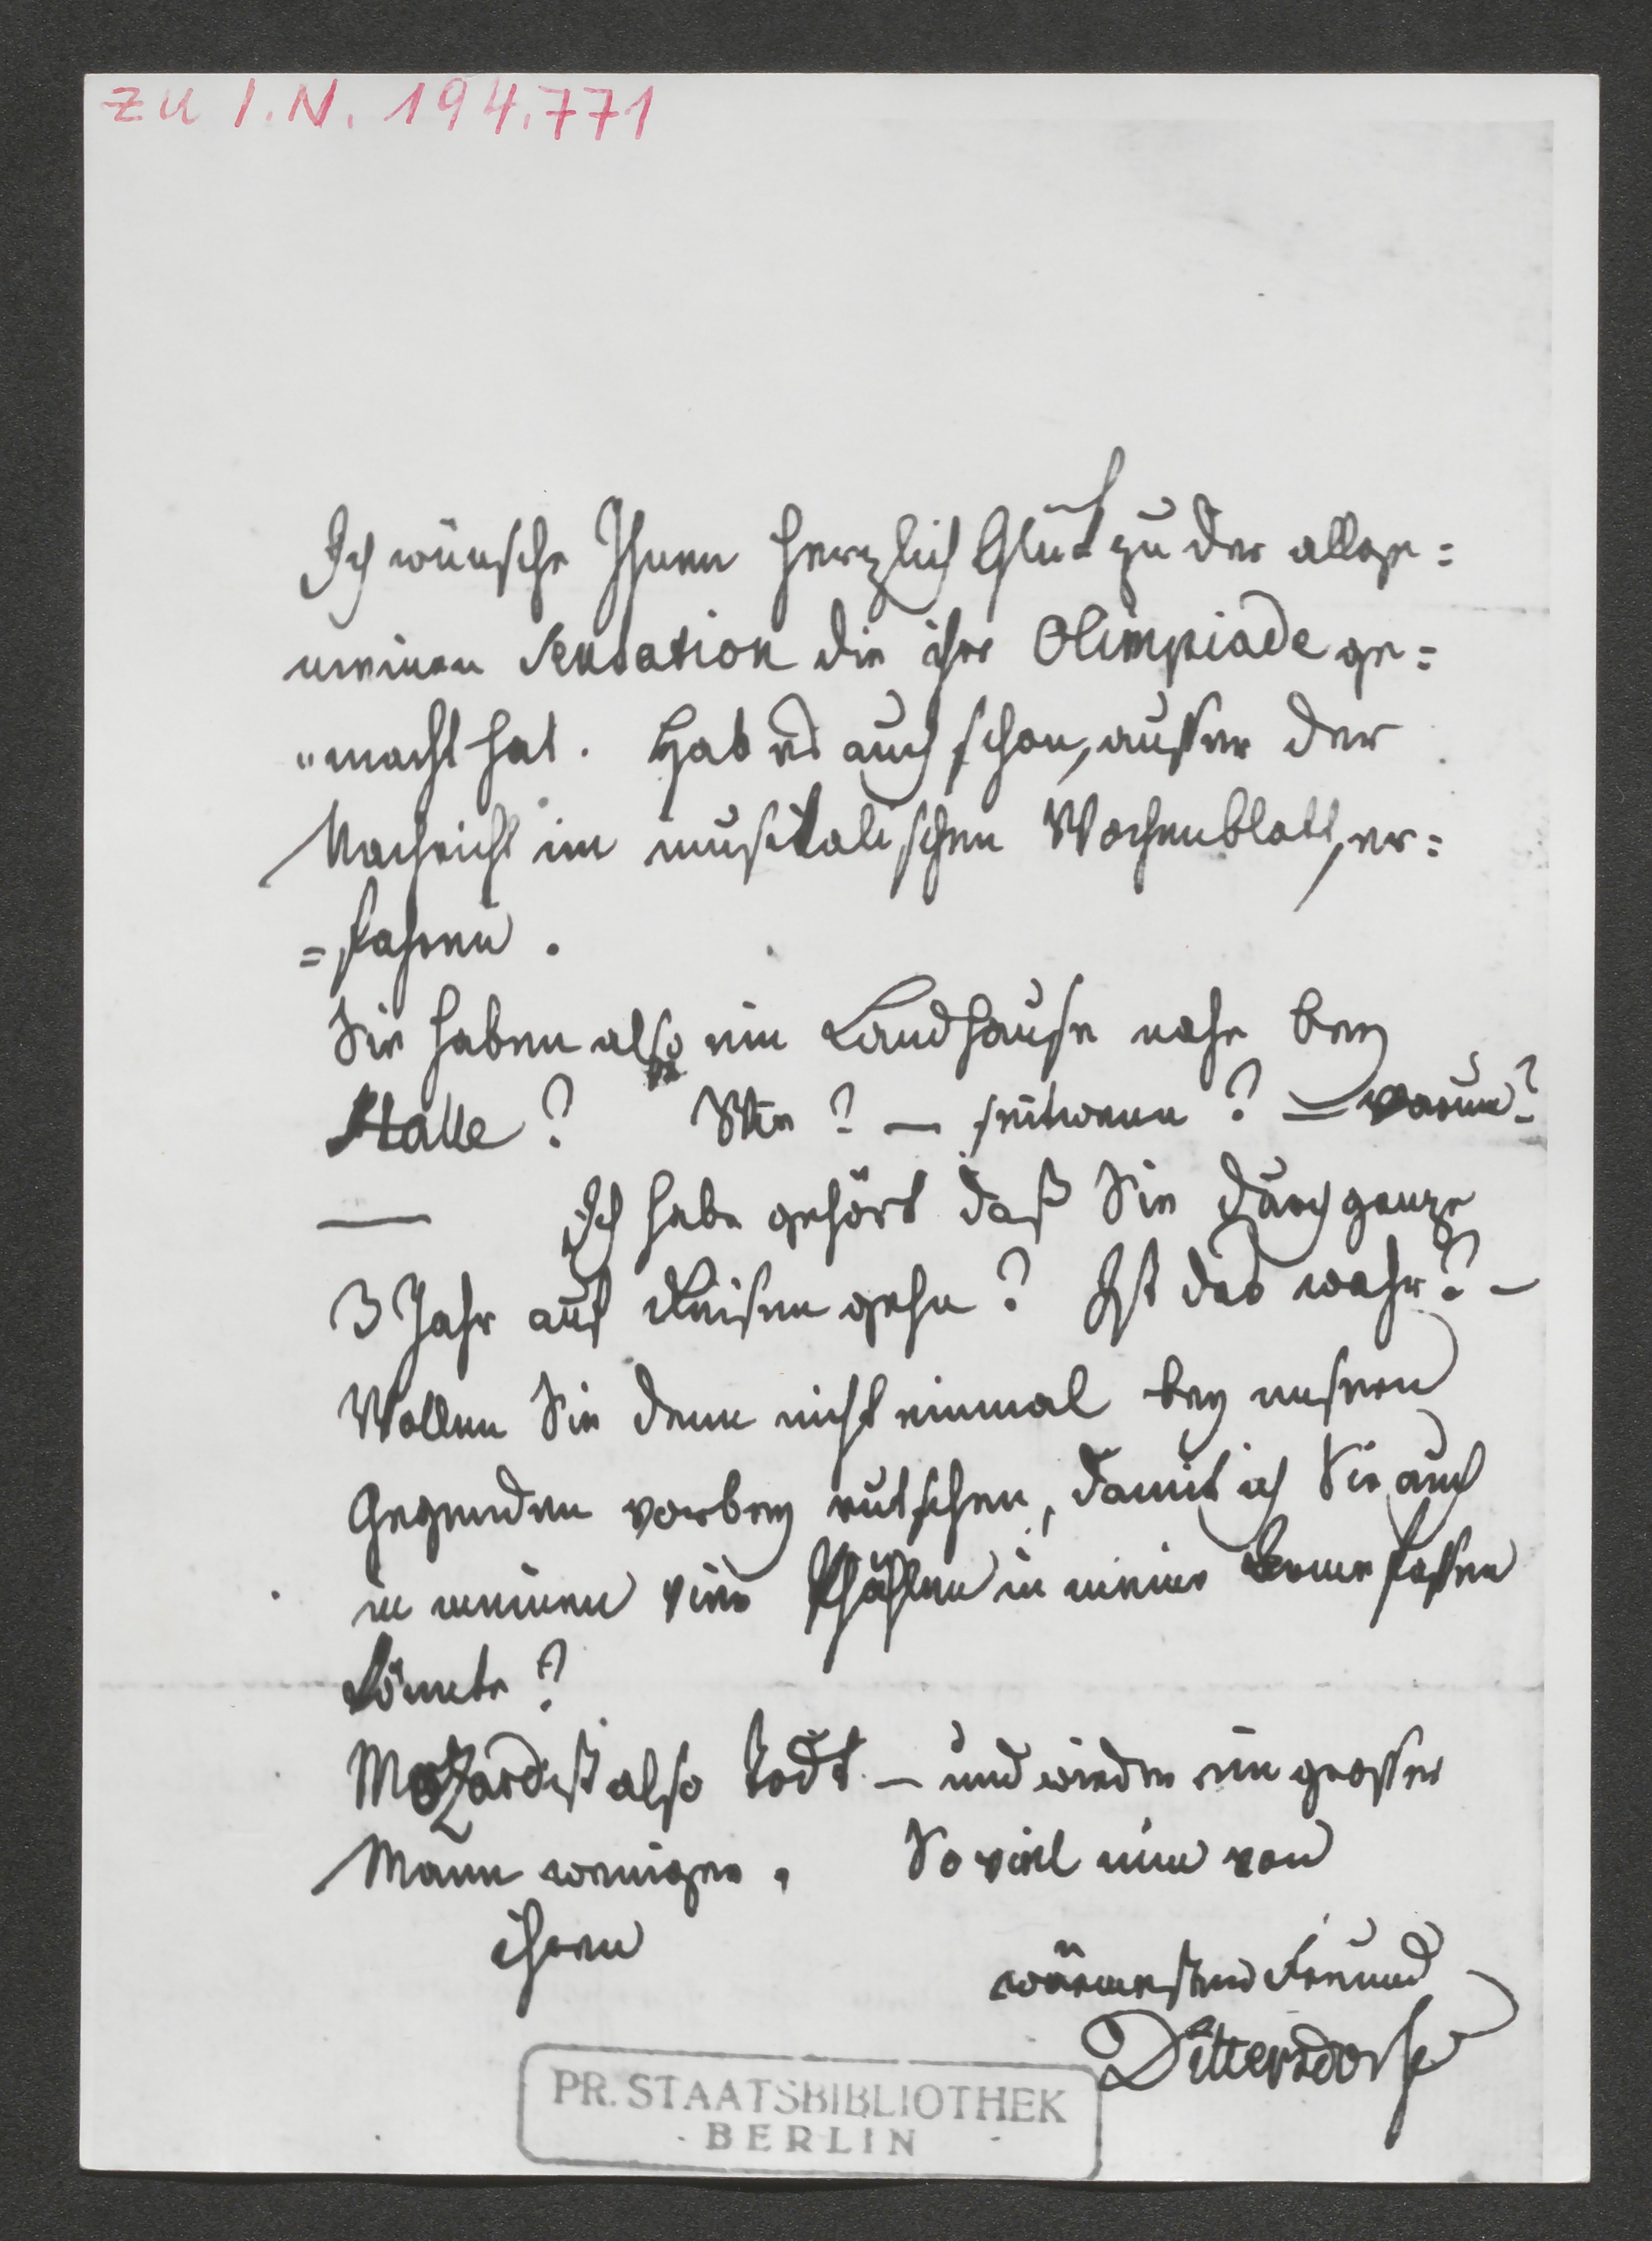 zu I.N. 194.771
Ich wünsche Ihnen herzlich Glük zu der allge=
meinen Sensation die ihre Olimpiade ge=
"macht hat. Hab es auch schon, ausser der
Nachricht im musikalischen Wochenblatt, er=
=fahren.
Sie haben also ein Landhause nahe bey
Halle? Wie? — seitwenn? — warum?
— Ich habe gehört daß Sie durch ganze
3 Jahr auf Reisen gehn? Ist das wahr? —
Wollen Sie denn nicht einmal bey unsren
Gegenden vorbey rutschen, damit ich Sie auch
in meinen vier Pfählen in meine Arme fassen
könnte?
Mozard ist also todt — und wieder ein grosser
Mann weniger. So viel nun von
ihren
wärmesten Freund
Dittersdorf
PR. STAATSBIBLIOTHEK
BERLIN